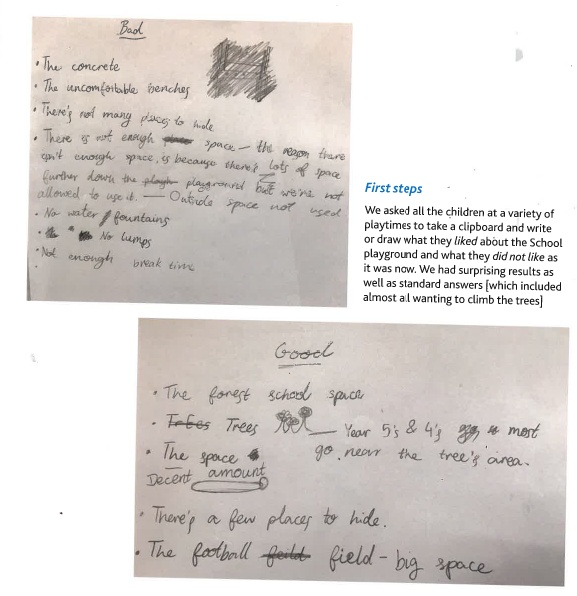 Bad
• The concrete
• The uncomfortable benches
• There's not many places to hide
• There is not enough space – the reason there
isn't enough space is because there's lots of space
further down the playground but we're not
allowed to use it. — Outside space not used
• No water fountains
• No lumps
• Not enough break time
First steps
We asked all the children at a variety of
playtimes to take a clipboard and write
or draw what they liked about the School
playground and what they did not like as
it was now. We had surprising results as
well as standard answers [which included
almost all wanting to climb the trees]
Good
• The forest school space
• Trees Trees — Year 5's & 4's most
go near the tree's area.
• The space
Decent amount
• There's a few places to hide.
• The football feild field - big space